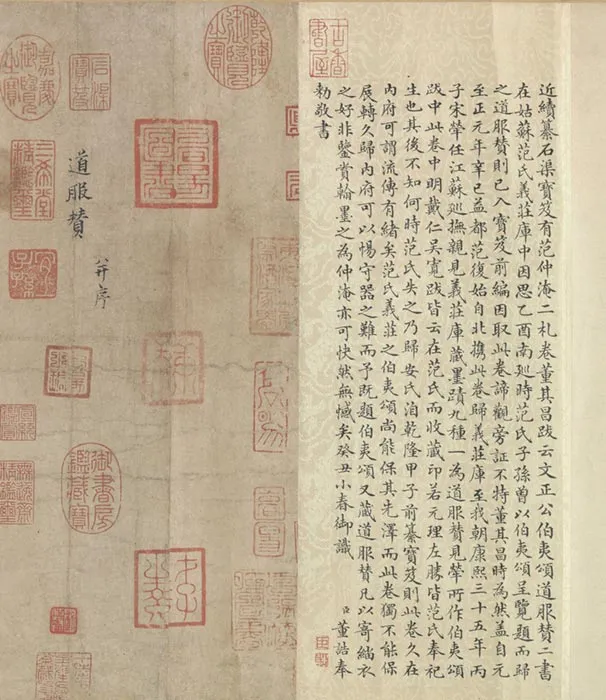 古香書屋
近續纂石渠寶笈有范仲淹二札卷董其昌跋云文正公伯夷頌道服贊二書
在姑蘇范氏義莊庫中因思乙酉南巡時范氏子孫曾以伯夷頌呈覽題而歸
之道服贊則已入寶笈前編因取此卷諦觀旁証不特董其昌時為然蓋自元
至正元年辛巳益都范復始自北攜此卷歸義莊庫至我朝康熙三十五年丙
子宋犖任江蘇巡撫親見義莊庫藏墨蹟九種一為道服贊見犖所作伯夷頌
跋中此卷中明戴仁吳寬跋皆云在范氏而收藏印若元理左勝皆范氏奉祀
生也其後不知何時范氏失之乃歸安氏洎乾隆甲子前纂寶笈則此卷久在
內府可謂流傳有緒矣范氏義莊之伯夷頌尚能保其先澤而此卷獨不能保
展轉久歸內府可以惕守器之難而予既題伯夷頌又藏道服贊凡以寄緇衣
之好非鑒賞翰墨之為仲淹亦可快然無憾矣癸丑小春御識
臣董誥奉
勅敬書
乾隆御覽之寶
石渠寶笈
道服贊
并序
御書房鑑藏寶
嘉慶御覽之寶
三希堂精鑑璽
宜子孫